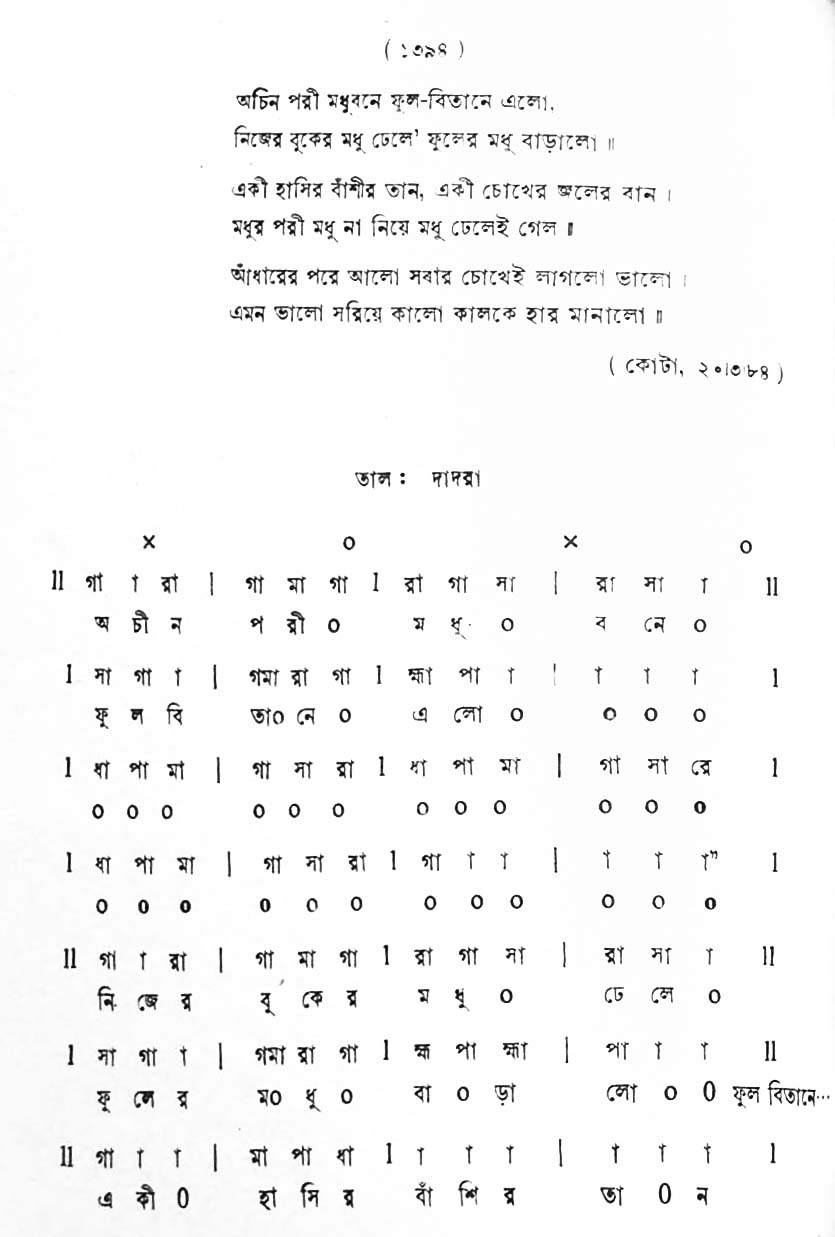 ( ১৩৯৪ )
অচিন পরী মধুবনে ফুল-বিতানে এলো,
নিজের বুকের মধু ঢেলে' ফুলের মধু বাড়ালো ॥
একী হাসির বাঁশীর তান, একী চোখের জলের বান ।
মধুর পরী মধু না নিয়ে মধু ঢেলেই গেল ॥
আঁধারের পরে আলো সবার চোখেই লাগলো ভালো ।
এমন ভালো সরিয়ে কালো কালকে হার মানালো ॥
( কোটা, ২০।৩।৮৪ )
তাল : দাদরা
× o × o
II গা া রা | গা মা গা I রা গা সা | রা সা া II
অ চী ন প রী o ম ধু o ব নে o
I সা গা া | গমা রা গা I হ্মা পা া | া া া I
ফু ল বি তাo নে o এ লো o o o o
I ধা পা মা | গা সা রা I ধা পা মা | গা সা রে I
o o o o o o o o o o o o
I ধা পা মা | গা সা রা I গা া া | া া া" I
o o o o o o o o o o o o
II গা া রা | গা মা গা I রা গা সা | রা সা া II
নি জে র বু কে র ম ধু o ঢে লে o
I সা গা া | গমা রা গা I হ্ম পা হ্মা | পা া া II
ফু লে র মo ধু o বা o ড়া লো o o ফুল বিতানে···
II গা া া | মা পা ধা I া া া | া া া I
এ কী o হা সি র বাঁ শি র তা o ন